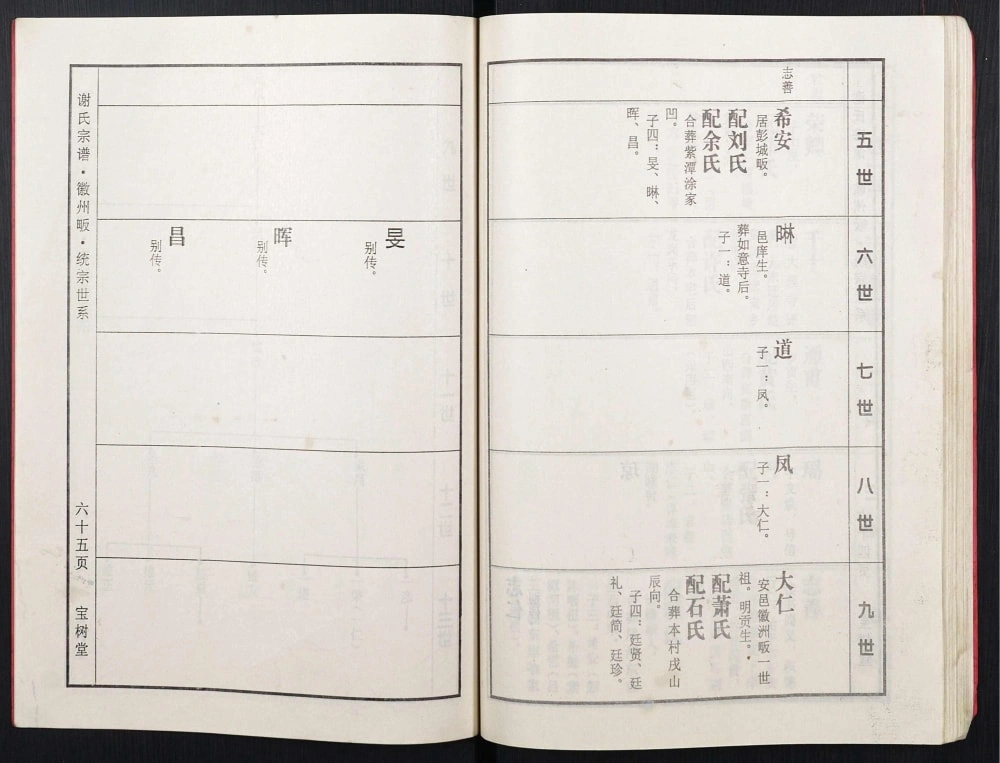 五世
志善
希安
居彭城畈。
配刘氏
配余氏
合葬紫潭涂家
凹。
子四：旻、晽、
晖、昌。
六世
晽
邑庠生。
葬如意寺后。
子一：道。
七世
道
子一：凤。
八世
凤
子一：大仁。
九世
大仁
安邑徽洲畈一世
祖。明贡生。
配萧氏
配石氏
合葬本村戌山
辰向。
子四：廷贤、廷
礼、廷简、廷珍。
旻
别传。
晖
别传。
昌
别传。
谢氏宗谱·徽州畈·统宗世系
六十五页
宝树堂